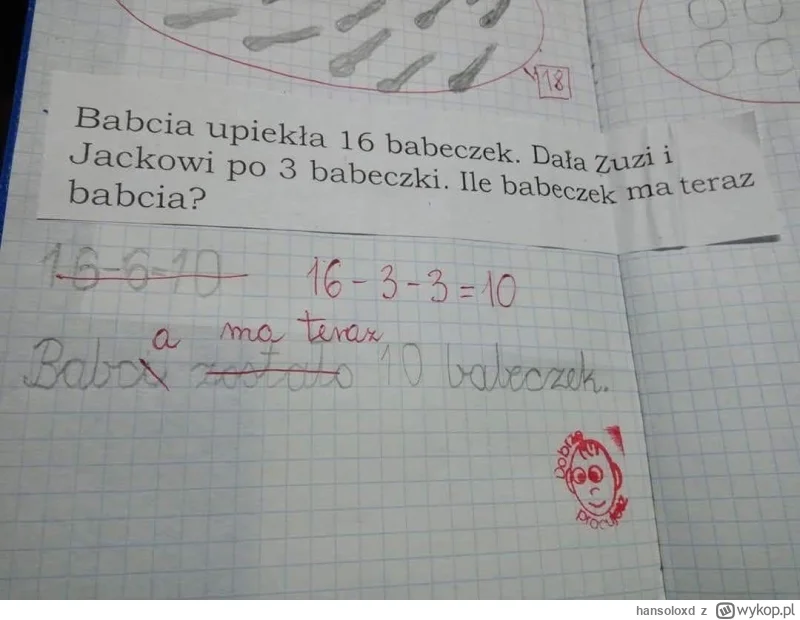 18
Babcia upiekła 16 babeczek. Dała Zuzi i
Jackowi po 3 babeczki. Ile babeczek ma teraz
babcia?
16-6=10 16-3-3=10
a ma teraz
Babci zostało 10 babeczek.
Dobrze
pracujesz
hansoloxd z wykop.pl